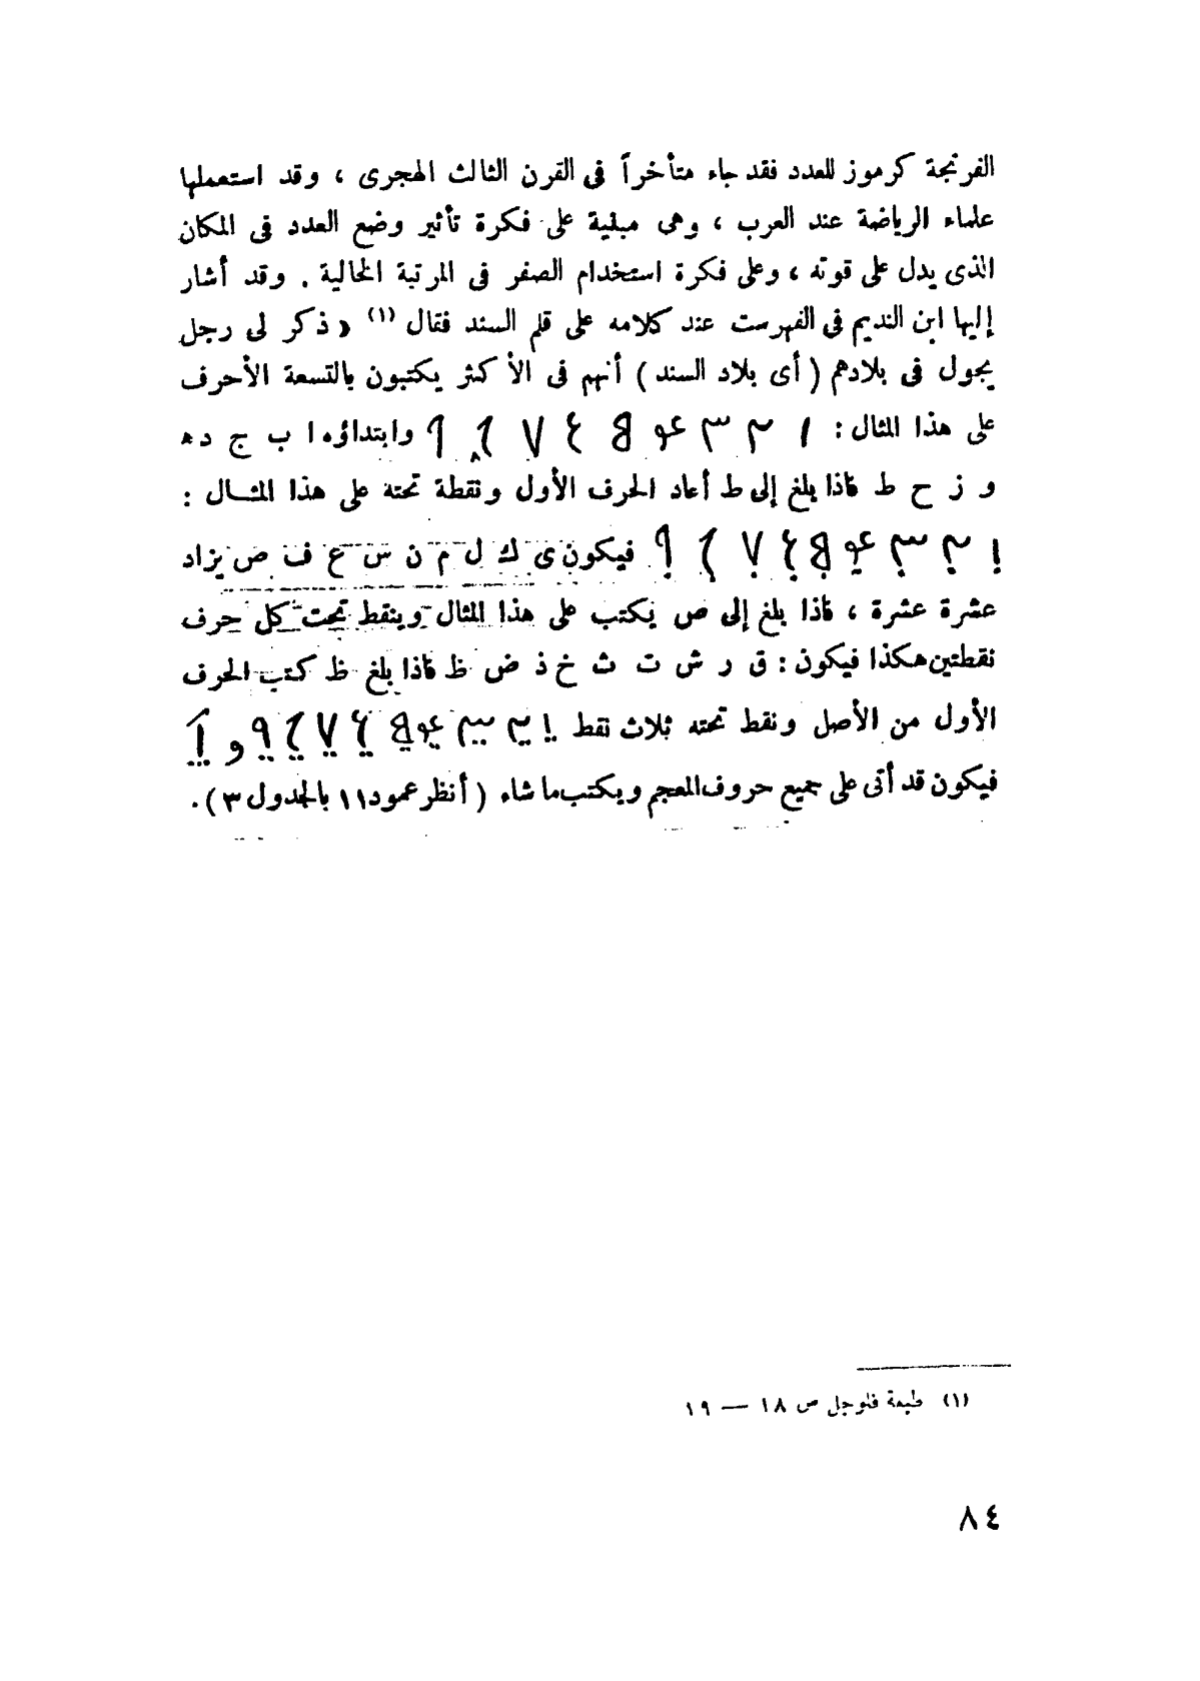 الفرنجة كرموز للعدد فقد جاء متأخراً فى القرن الثالث الهجرى ، وقد استعملها
علماء الرياضة عند العرب ، وهى مبنية على فكرة تأثير وضع العدد فى المكان
الذى يدل على قوته ، وعلى فكرة استخدام الصفر فى المرتبة الخالية . وقد أشار
إليها ابن النديم فى الفهرست عند كلامه على قلم السند فقال (١) « ذكر لى رجل
يجول فى بلادهم ( أى بلاد السند ) أنهم فى الأكثر يكتبون بالتسعة الأحرف
على هذا المثال : وابتداؤه ا ب ج د ه
و ز ح ط فاذا بلغ إلى ط أعاد الحرف الأول ونقطة تحته على هذا المثال :
فيكون ى ك ل م ن س ع ف ص يزاد
عشرة عشرة ، فاذا بلغ إلى ص يكتب على هذا المثال وينقط تحت كل حرف
نقطتين هكذا فيكون : ق ر ش ت ث خ ذ ض ظ فاذا بلغ ظ كتب الحرف
الأول من الأصل ونقط تحته ثلاث نقط
فيكون قد أتى على جميع حروف المعجم ويكتب ما شاء ( أنظر عمود ١١ بالجدول ٣ ) .
(١) طبعة فلوجل ص ١٨ — ١٩
٨٤